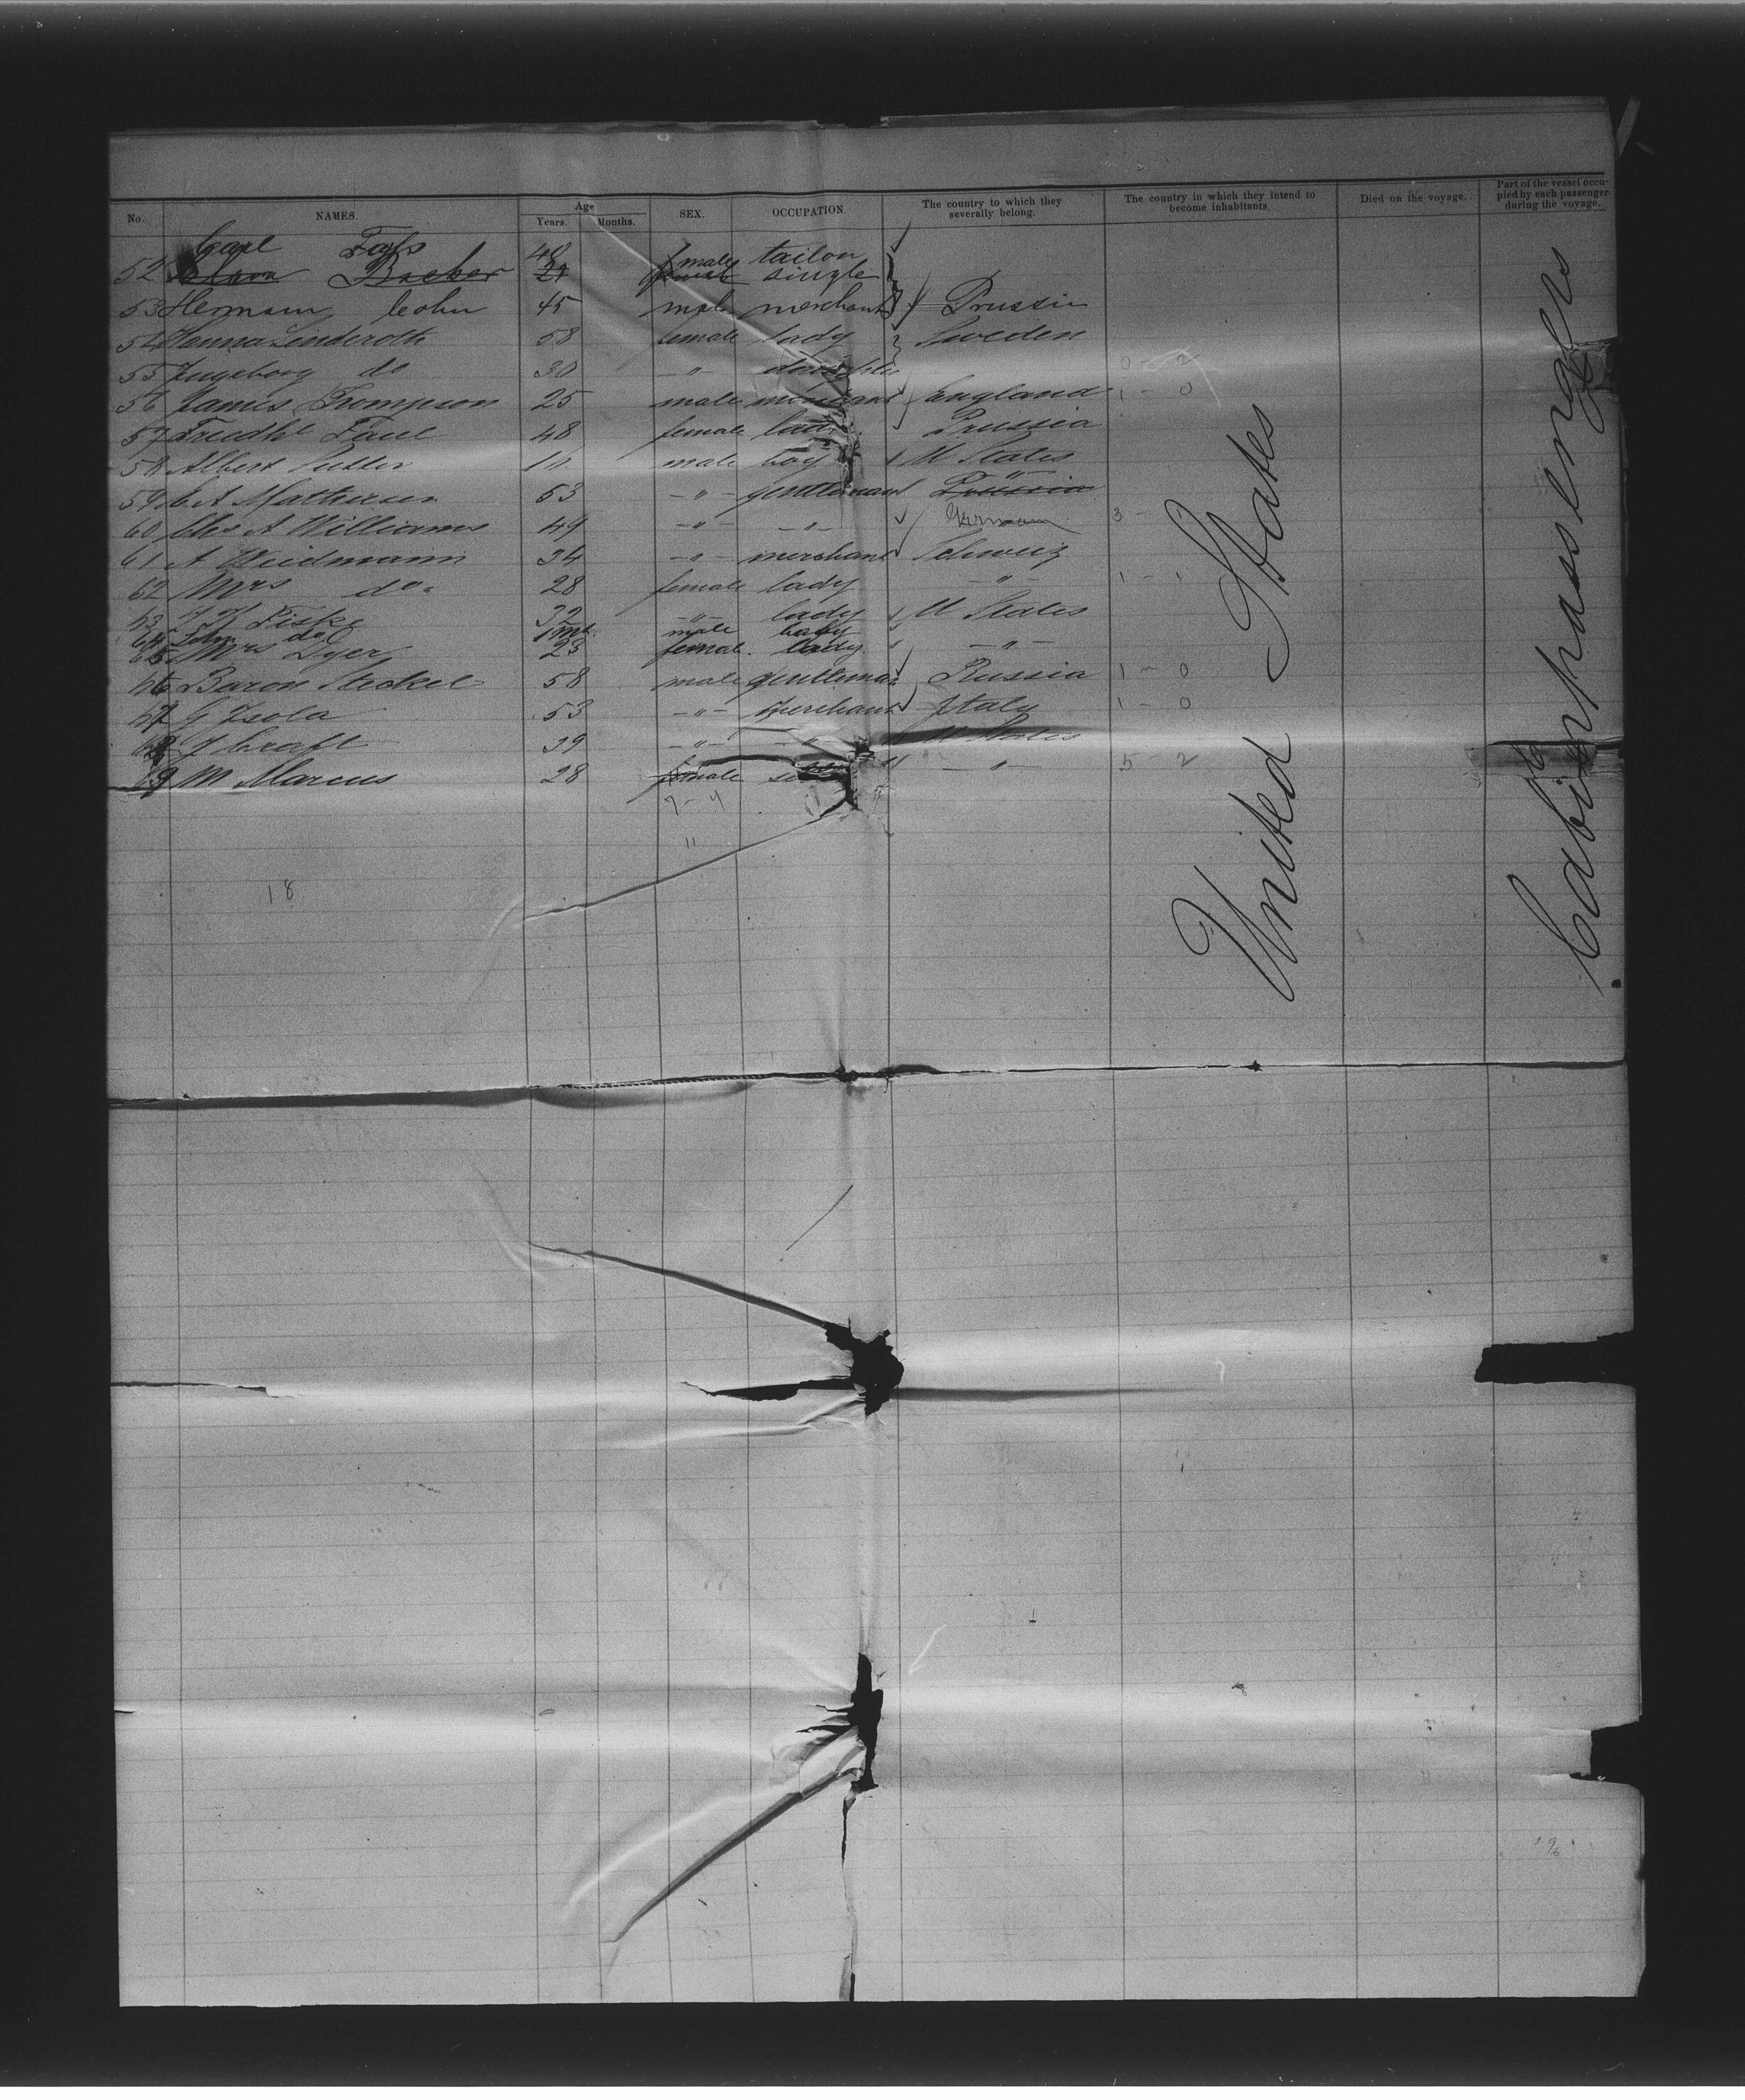 No. NAMES. Age Years. Months. SEX. OCCUPATION. The country to which they severally belong. The country in which they intend to become inhabitants. Died on the voyage. Part of the vessel occupied by each passenger during the voyage.
Carl 40 male tailor
52 Clara Backer 21 single
53 Hermann Cohn 45 male merchant Prussia
54 Hanna Linderoth 58 female lady Sweden
55 Ingeborg do 30 -"- 0 - 2
56 James Trompson 25 male merchant England 1 - 0
57 48 female lady Prussia
58 Albert male boy U States
59 C A 53 -"- gentleman Prussia
60 Chs A Williams 49 -"- -"- German 3 -
61 A Weidmann 34 -"- merchant Schweiz
62 Mrs do. 28 female lady -"- 1 - 1
63 Fiske 32 -"- lady U States
64 John do 1 mt. male baby
65 Mrs Dyer 23 female. lady -"-
66 Baron Steckel 58 male gentleman Russia 1 - 0
67 G Isola 53 -"- Merchant Italy 1 - 0
68 J Craft 39 -"- -"- U States
69 M Marcus 28 female -"- 5 - 2
7 - 4
11
18
United States
Cabin passengers